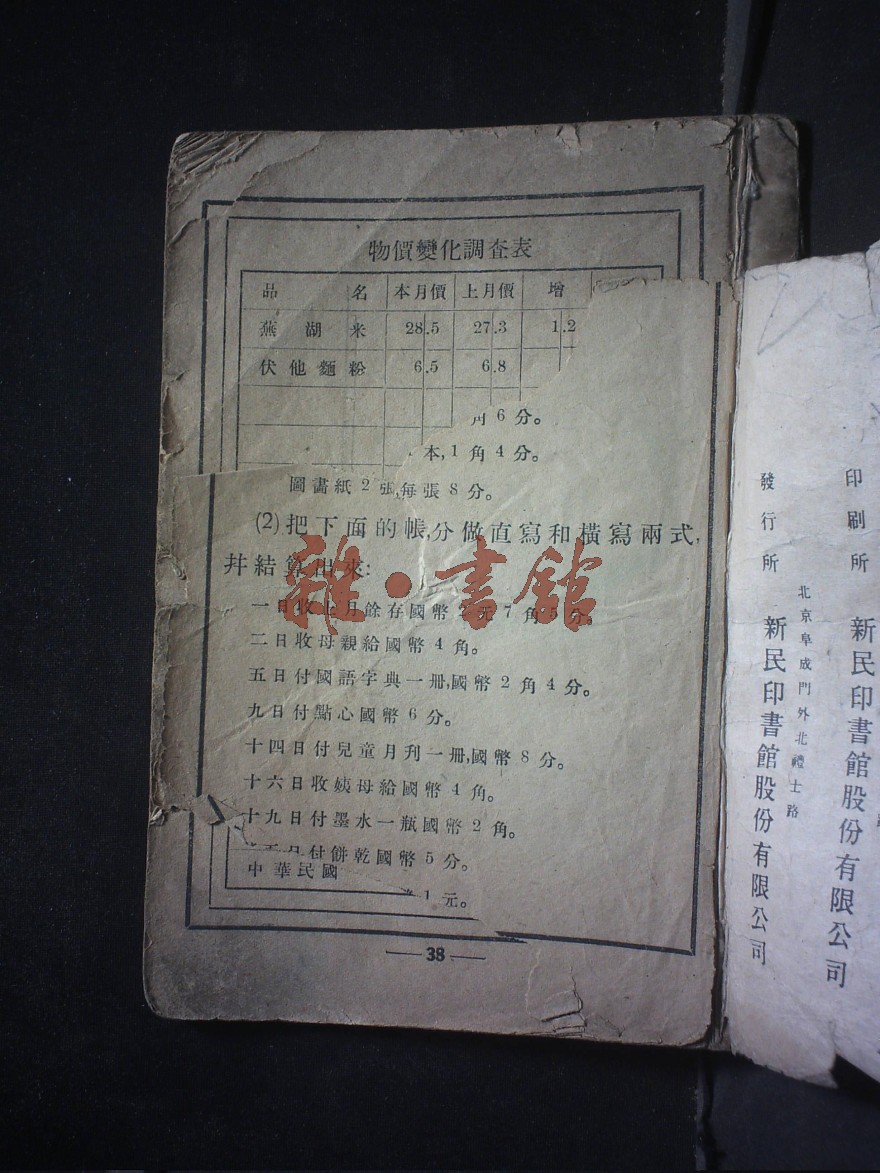 物價變化調查表
品 名 本月價 上月價 增
蕪湖米 28.5 27.3 1.2
伏他麵粉 6.5 6.8
角6分。
本,1角4分。
圖畫紙2張,每張8分。
(2)把下面的帳,分做直寫和橫寫兩式,
幷結算出來:
一日收上月餘存國幣2元7角5分。
二日收母親給國幣4角。
五日付國語字典一冊,國幣2角4分。
九日付點心國幣6分。
十四日付兒童月刊一冊,國幣8分。
十六日收姨母給國幣4角。
十九日付墨水一瓶國幣2角。
五日付餅乾國幣5分。
中華民國
1元。
38
雜·書館
印刷所 新民印書館股份有限公司
北京阜成門外北禮士路
發行所 新民印書館股份有限公司